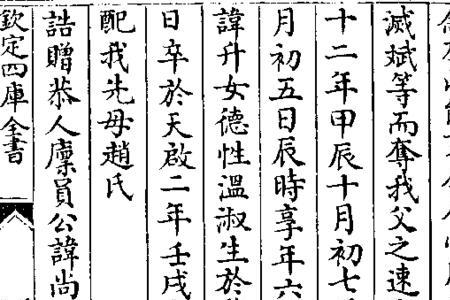 滅斌等而奪我父之速
十二年甲辰十月初七
月初五日辰時享年六
諱升女德性溫淑生於
日卒於天啟二年壬戌
配我先母趙氏
誥贈恭人廩員公諱尚
欽定四庫全書